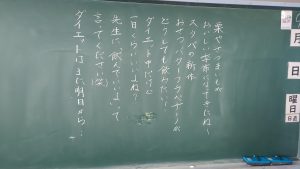 栗やさつまいもが
おいしい季節になりましたね～
スタバの新作
おさつバターフラペチーノが
とっても飲みたい！
ダイエット中だけど
一日くらいいいよね？
先生、「飲んでいいよ」って
言ってください(笑)
ダイエットはまた明日から…
月
日
曜日
日直